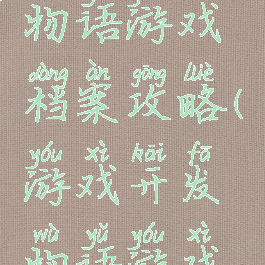 物语游戏
dàng àn gōng lüè
档案攻略(
yóu xì kāi fā
游戏开发
wù yǔ yóu xì
物语游戏